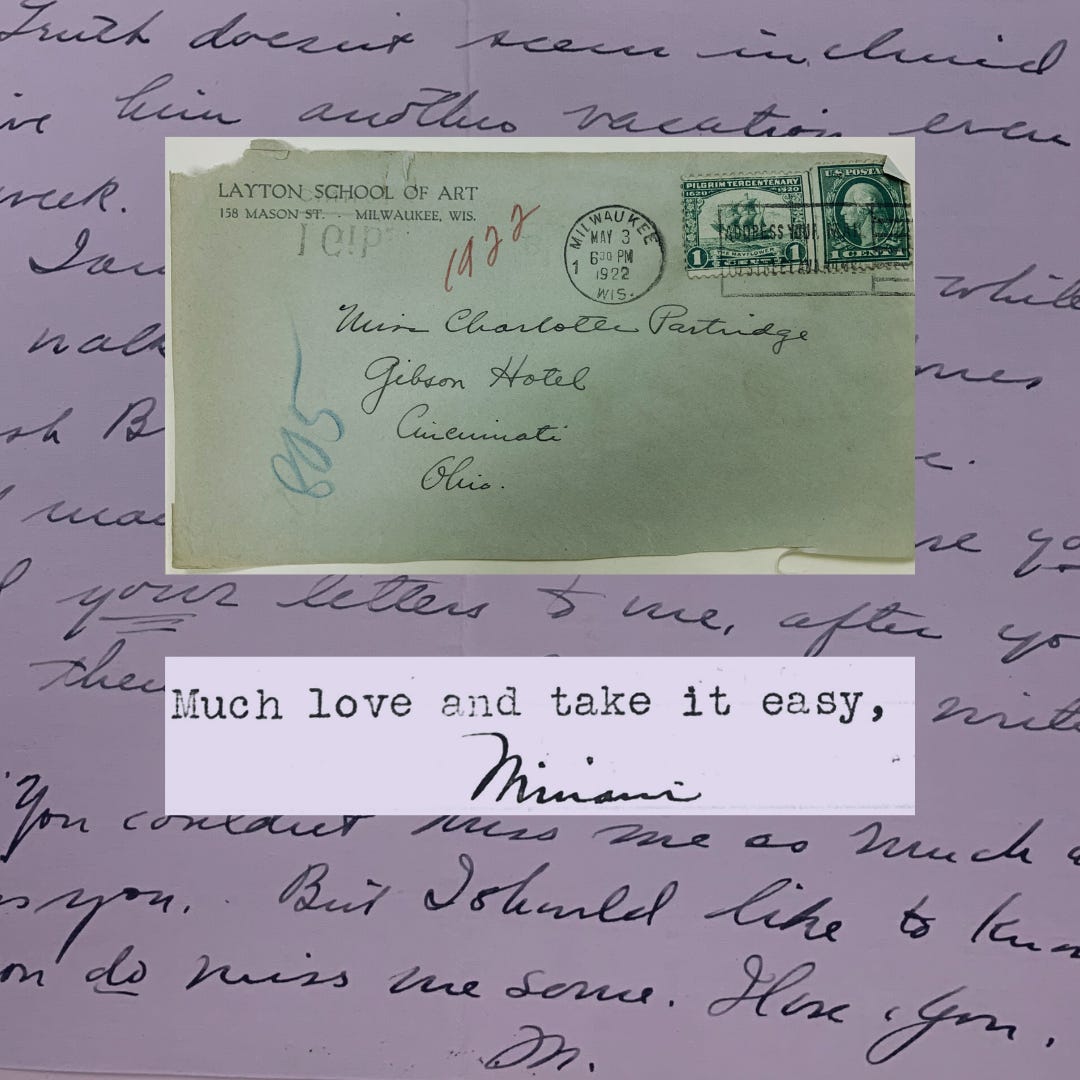 Truth doesn't seem inclined
him another vacation even
week.
LAYTON SCHOOL OF ART
158 MASON ST. · MILWAUKEE, WIS.
1922
MILWAUKEE
MAY 3
6 30 PM
1922
WIS.
1
PILGRIM TERCENTENARY
1620 1920
THE MAYFLOWER
1 CENTS 1
U.S. POSTA
1 CENT
ADDRESS YOUR MAIL
Miss Charlotte Partridge
Gibson Hotel
Cincinnati
Ohio.
while
walk
your letters to me, after yo
then
write
Much love and take it easy,
Miriam
You couldn't miss me as much a
s you. But I should like to know
on do miss me some. I love you.
M.